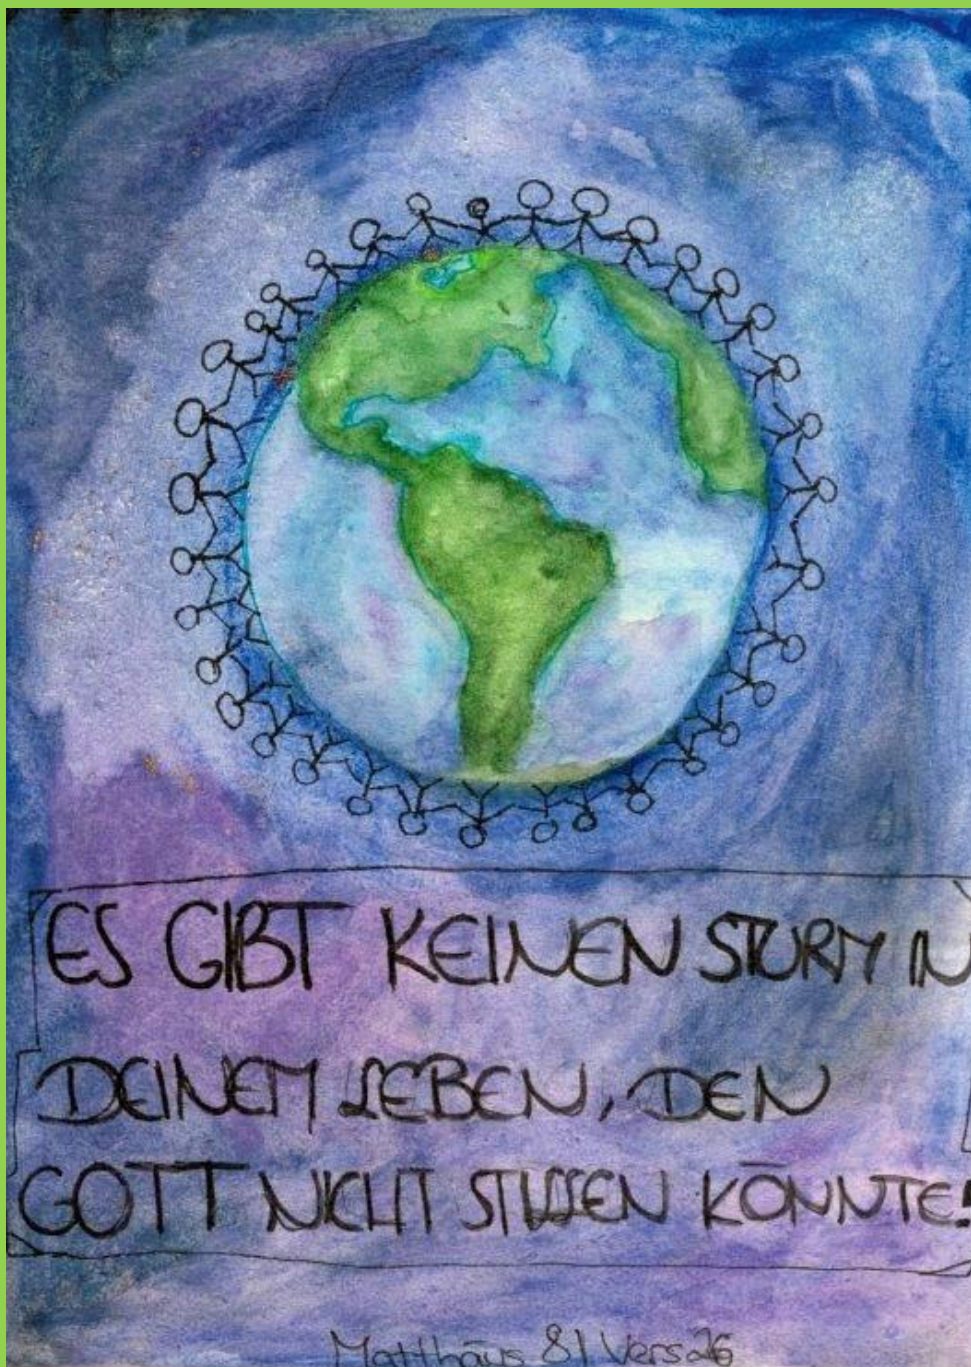 ES GIBT KEINEN STURM IN
DEINEM LEBEN, DEN
GOTT NICHT STILLEN KÖNNTE!
Matthäus 8 | Vers 26